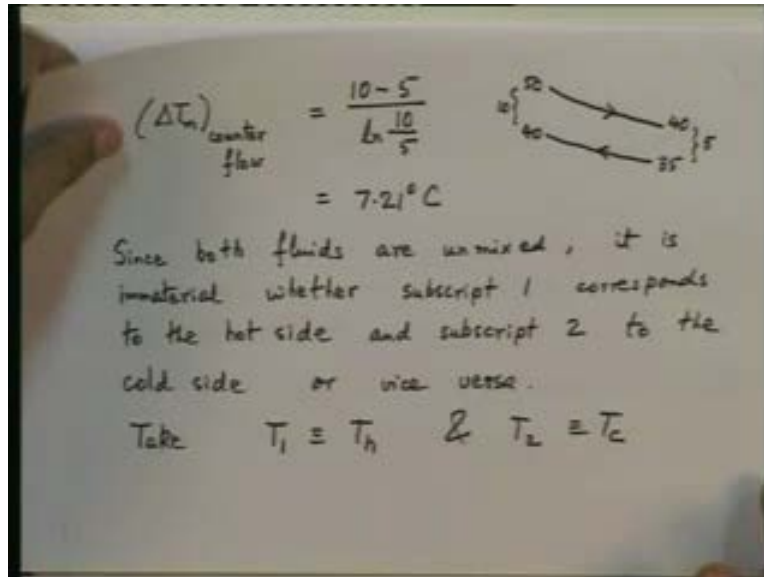 (ΔTm) counter flow = 10 - 5 / ln 10/5
= 7.21° C
50 40
10 5
40 35
Since both fluids are unmixed, it is
immaterial whether subscript 1 corresponds
to the hot side and subscript 2 to the
cold side or vice versa.
Take T1 ≡ Th & T2 ≡ Tc